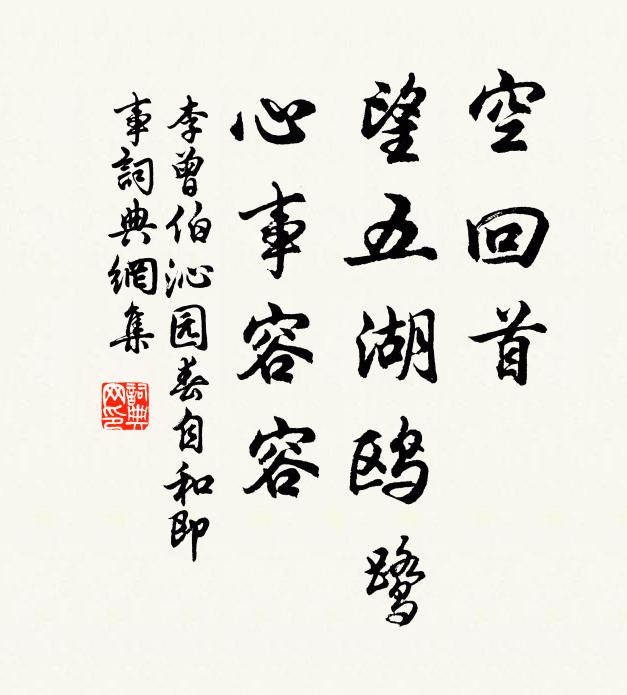 空回首
望五湖鸥鹭
心事容容
李曾伯沁园春自和即
事詞典網集
詞典
网印